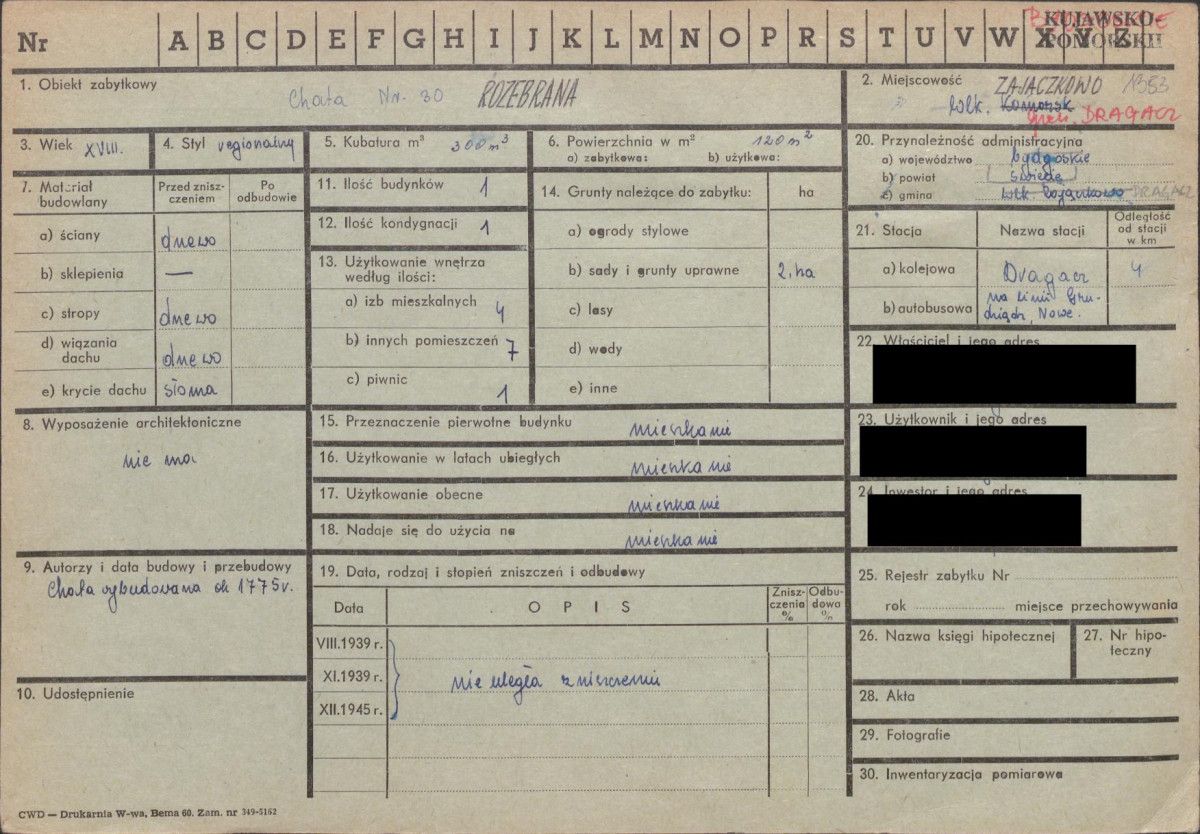 Nr A B C D E F G H I J K L M N O P R S T U V W X Y Z
KUJAWSKO-
POMORSKIE
1. Obiekt zabytkowy
Chata Nr. 30 ROZEBRANA
2. Miejscowość ZAJĄCZKOWO 1353
Wlk. Komorsk
gm. DRAGACZ
3. Wiek XVIII.
4. Styl regionalny
5. Kubatura m³ 300 m³
6. Powierzchnia w m² 120 m²
a) zabytkowa: b) użytkowa:
7. Materiał
budowlany
Przed znisz-
czeniem
Po
odbudowie
a) ściany drzewo
b) sklepienia —
c) stropy drzewo
d) wiązania
dachu drzewo
e) krycie dachu słoma
8. Wyposażenie architektoniczne
nie ma
9. Autorzy i data budowy i przebudowy
Chata wybudowana ok 1775 r.
10. Udostępnienie
11. Ilość budynków 1
12. Ilość kondygnacji 1
13. Użytkowanie wnętrza
według ilości:
a) izb mieszkalnych 4
b) innych pomieszczeń 7
c) piwnic 1
14. Grunty należące do zabytku: ha
a) ogrody stylowe
b) sady i grunty uprawne 2,ha
c) lasy
d) wody
e) inne
15. Przeznaczenie pierwotne budynku mieszkanie
16. Użytkowanie w latach ubiegłych mieszkanie
17. Użytkowanie obecne mieszkanie
18. Nadaje się do użycia na mieszkanie
19. Data, rodzaj i stopień zniszczeń i odbudowy
Data OPIS
Znisz-
czenia
%
Odbu-
dowa
%
VIII.1939 r.
XI.1939 r. nie uległa zniszczeniu
XII.1945 r.
20. Przynależność administracyjna
a) województwo bydgoskie
b) powiat Świecie
c) gmina Wlk. Zajączkowo DRAGACZ
21. Stacja
Nazwa stacji
Odległość
od stacji
w km
a) kolejowa Dragacz 4
b) autobusowa na linii Gru-
dziądz, Nowe.
22. Właściciel i jego adres
23. Użytkownik i jego adres
24. Inwestor i jego adres
25. Rejestr zabytku Nr
rok miejsce przechowywania
26. Nazwa księgi hipotecznej
27. Nr hipo-
teczny
28. Akta
29. Fotografie
30. Inwentaryzacja pomiarowa
CWD — Drukarnia W-wa, Bema 60. Zam. nr 349-5162